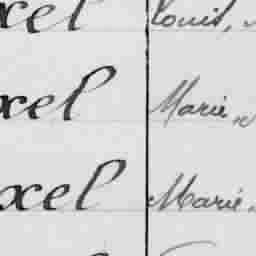 xel Louis,
xel Marie,
xel Marie.